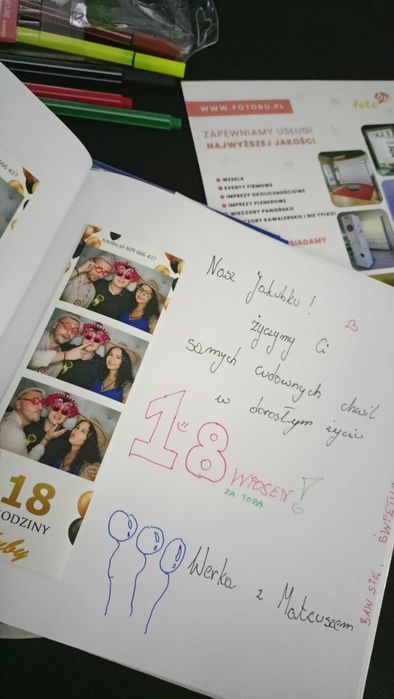 WWW.FOTOBU.PL
foto
ZAPEWNIAMY USŁUGI
NAJWYŻSZEJ JAKOŚCI
WESELA
EVENTY FIRMOWE
IMPREZY OKOLICZNOŚCIOWE
IMPREZY PLENEROWE
WIECZORY PANIEŃSKIE
KAWALERSKIE I NIE TYLKO
fotobu.pl 609 666 437
18
Nasz Jakubku!
życzymy Ci
samych cudownych chwil
w dorosłym życiu
18 WIOSEN
ZA TOBĄ
Werka z Mateuszem
BAW SIĘ!